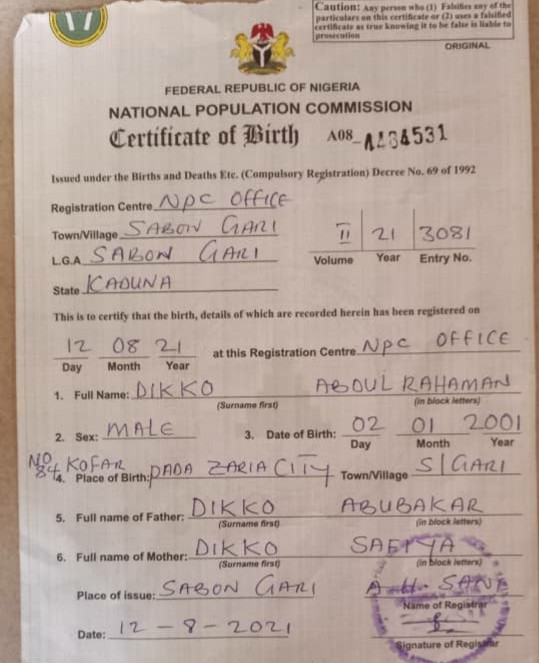 Caution: Any person who (1) Falsifies any of the
particulars on this certificate or (2) uses a falsified
certificate as true knowing it to be false is liable to
prosecution
ORIGINAL
FEDERAL REPUBLIC OF NIGERIA
NATIONAL POPULATION COMMISSION
Certificate of Birth A08-
Issued under the Births and Deaths Etc. (Compulsory Registration) Decree No. 69 of 1992
Registration Centre NPC OFFICE
Town/Village SABON GARI
L.G.A SABON GARI
II 21 3081
Volume Year Entry No.
State KADUNA
This is to certify that the birth, details of which are recorded herein has been registered on
12 08 21 at this Registration Centre NPC OFFICE
Day Month Year
1. Full Name: DIKKO ABDUL RAHAMAN
(Surname first) (in block letters)
2. Sex: MALE 3. Date of Birth: 02 01 2001
Day Month Year
NO 84 KOFAR
4. Place of Birth: DADA ZARIA CITY Town/Village S/GARI
5. Full name of Father: DIKKO ABUBAKAR
(Surname first) (in block letters)
6. Full name of Mother: DIKKO SAFIYA
(Surname first) (in block letters)
Place of issue: SABON GARI A. H. SANI
Name of Registrar
Date: 12-8-2021
Signature of Registrar